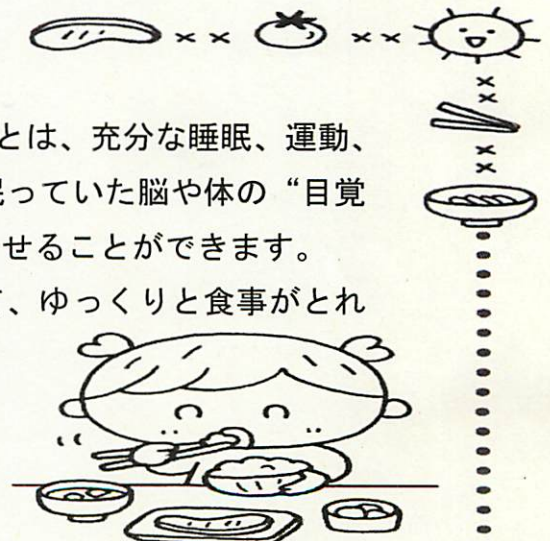 とは、充分な睡眠、運動、
眠っていた脳や体の“目覚
せることができます。
、ゆっくりと食事がとれ